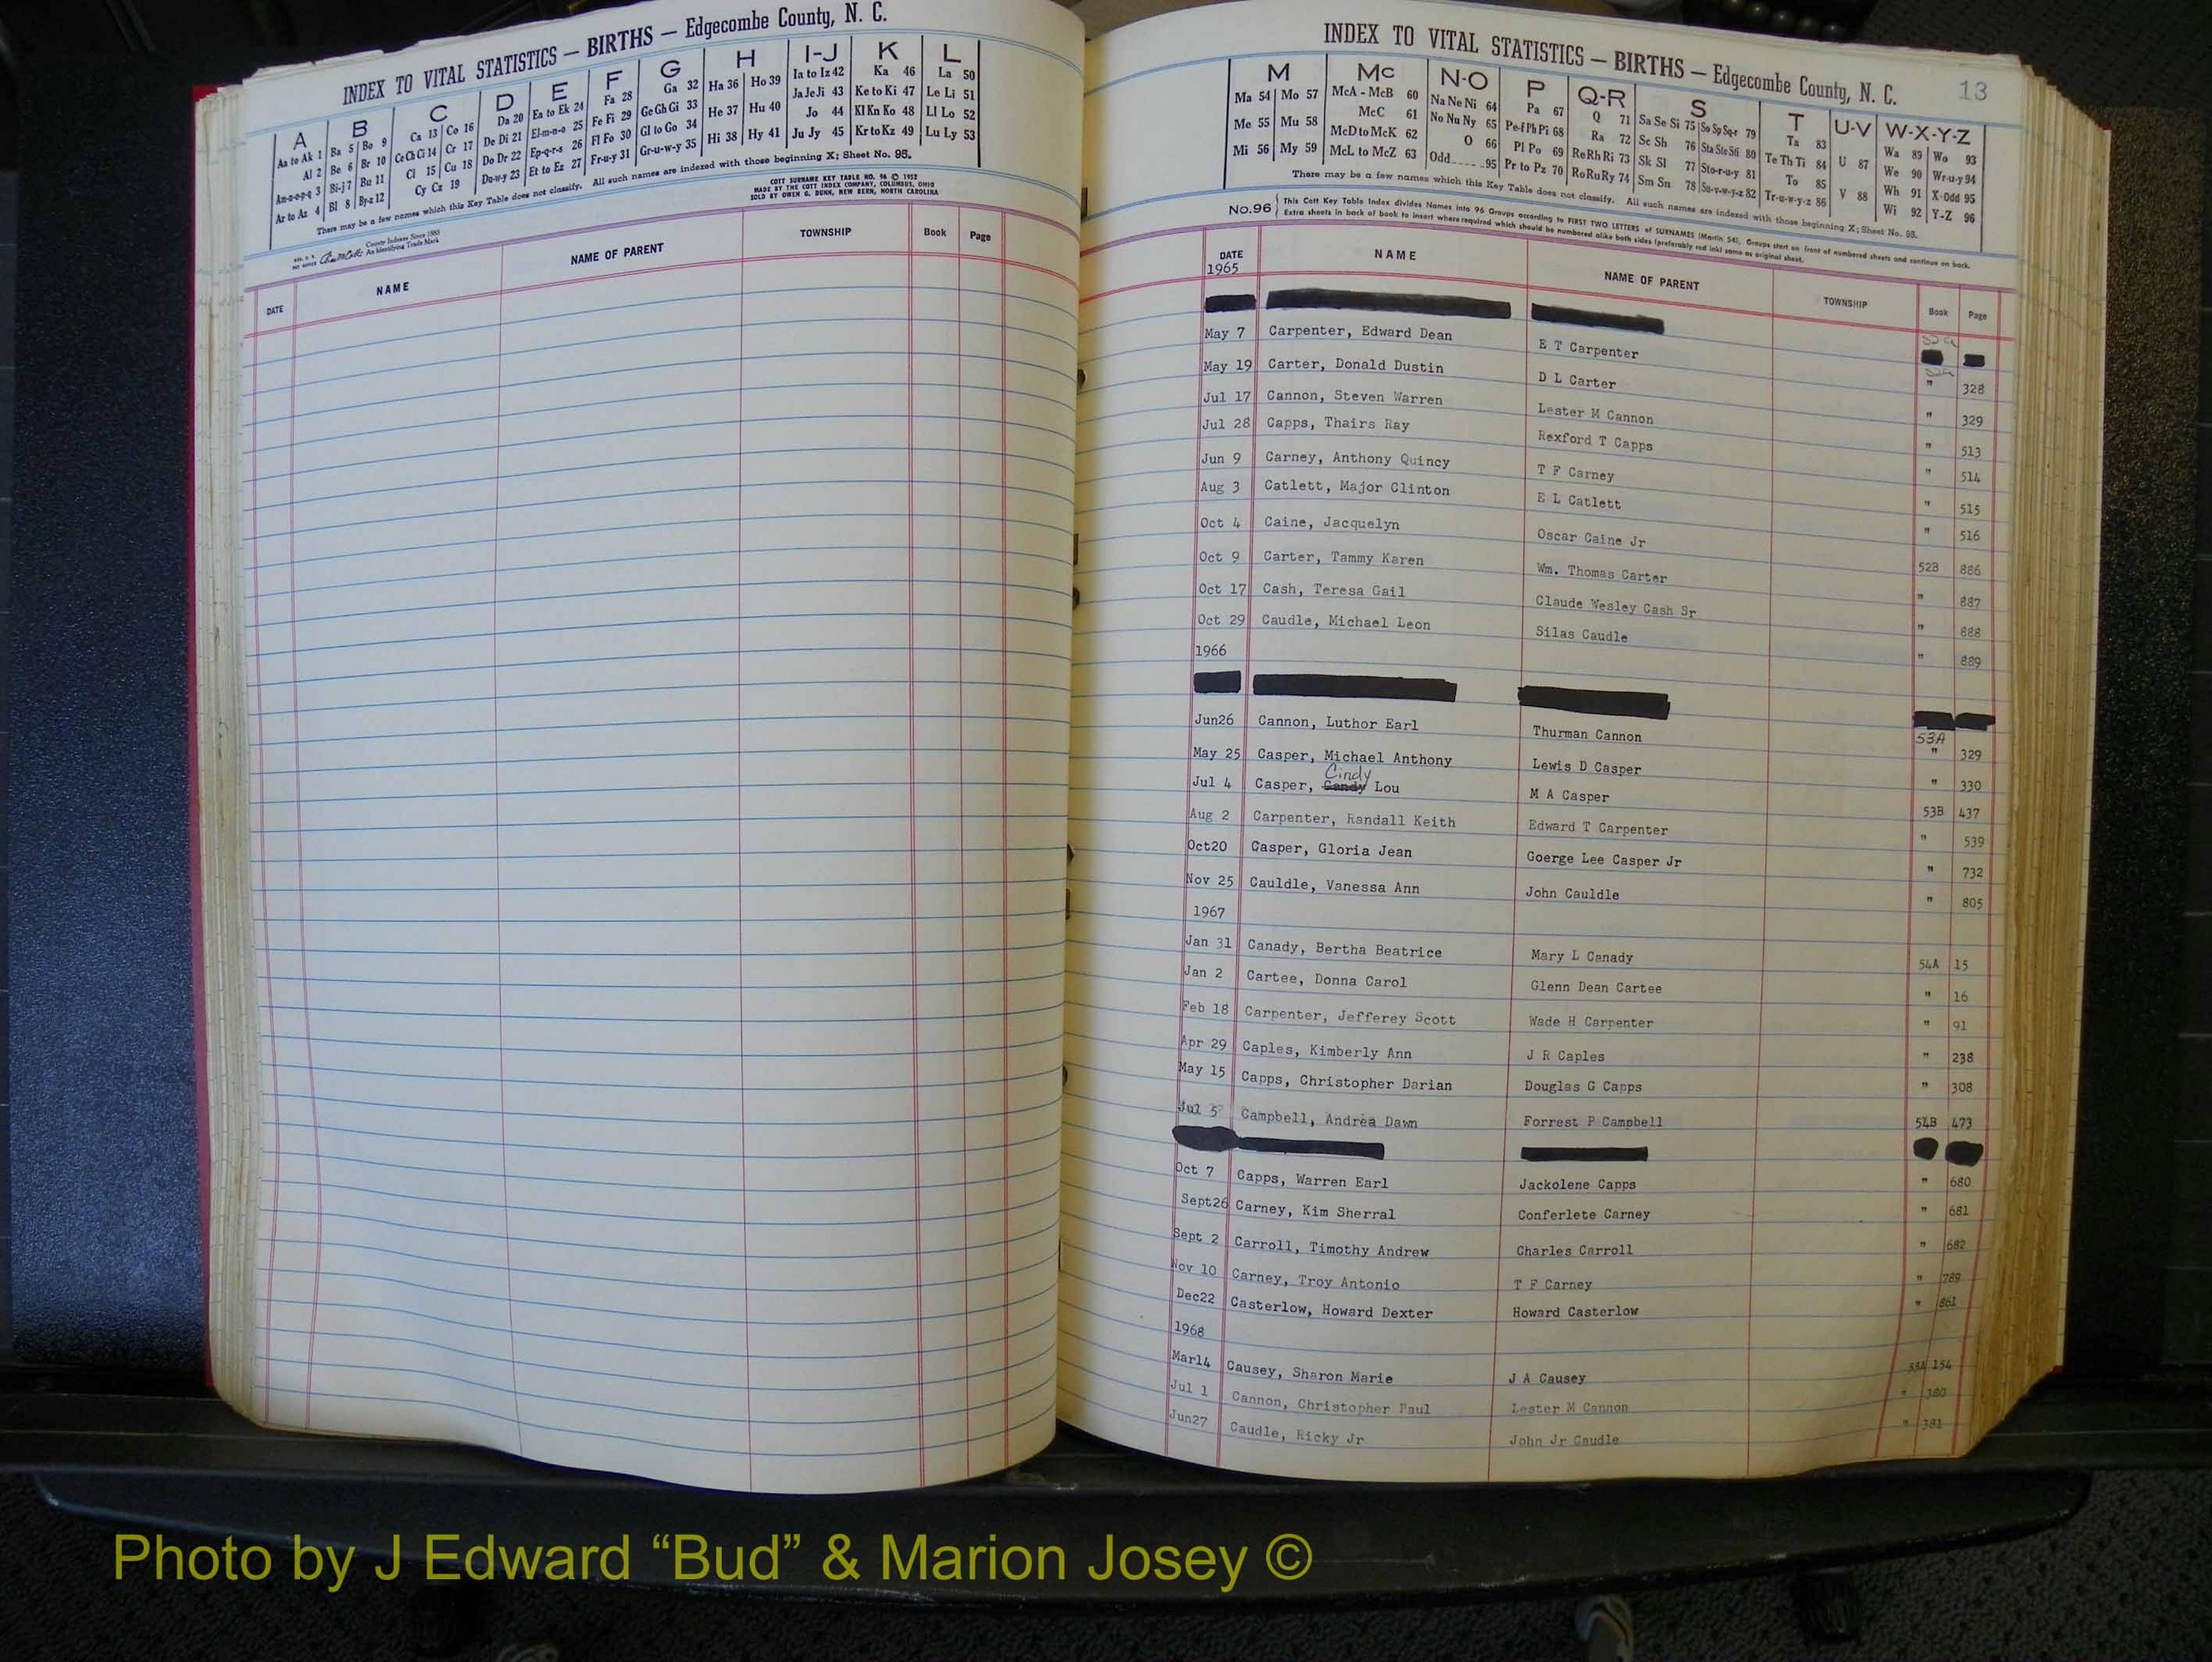 INDEX TO VITAL STATISTICS — BIRTHS — Edgecombe County, N. C.
A B C D E F G H I-J K L
Aa to Ak 1 Ba 5 Bo 9 Ca 13 Co 16 Da 20 Ea to Ek 24 Fa 28 Ga 32 Ha 36 Ho 39 Ia to Iz 42 Ka 46 La 50
Al 2 Be 6 Br 10 Ce Ch Ci 14 Cr 17 De Di 21 El-m-n-o 25 Fe Fi 29 Ge Gh Gi 33 He 37 Hu 40 Ja Je Ji 43 Ke to Ki 47 Le Li 51
Am-n-o-p-q 3 Bi-j 7 Bu 11 Cl 15 Cu 18 Do Dr 22 Ep-q-r-s 26 Fl Fo 30 Gl to Go 34 Hi 38 Hy 41 Jo 44 Kl Kn Ko 48 Ll Lo 52
Ar to Az 4 Bl 8 By-z 12 Cy Cz 19 Du-w-y 23 Et to Ez 27 Fr-u-y 31 Gr-u-w-y 35 Ju Jy 45 Kr to Kz 49 Lu Ly 53
There may be a few names which this Key Table does not classify. All such names are indexed with those beginning X; Sheet No. 95.
COTT SURNAME KEY TABLE NO. 96 © 1952
MADE BY THE COTT INDEX COMPANY, COLUMBUS, OHIO
SOLD BY OWEN G. DUNN, NEW BERN, NORTH CAROLINA
County Indexes Since 1888
An Identifying Trade Mark
DATE NAME NAME OF PARENT TOWNSHIP Book Page
INDEX TO VITAL STATISTICS — BIRTHS — Edgecombe County, N. C. 13
M Mc N-O P Q-R S T U-V W-X-Y-Z
Ma 54 Mo 57 McA - McB 60 Na Ne Ni 64 Pa 67 Q 71 Sa Se Si 75 So Sp Sq-r 79 Ta 83 U 87 Wa 89 Wo 93
Me 55 Mu 58 McC 61 No Nu Ny 65 Pe-f Ph Pi 68 Ra 72 Sc Sh 76 Sta Ste Sti 80 Te Th Ti 84 V 88 We 90 Wr-u-y 94
Mi 56 My 59 McD to McK 62 O 66 Pl Po 69 Re Rh Ri 73 Sk Sl 77 Sto-r-u-y 81 To 85 Wh 91 X-Odd 95
McL to McZ 63 Odd 95 Pr to Pz 70 Ro Ru Ry 74 Sm Sn 78 Su-v-w-y-z 82 Tr-u-w-y-z 86 Wi 92 Y-Z 96
There may be a few names which this Key Table does not classify. All such names are indexed with those beginning X; Sheet No. 95.
No.96 This Cott Key Table Index divides Names into 96 Groups according to FIRST TWO LETTERS of SURNAMES (Martin 54). Groups start on front of numbered sheets and continue on back.
Extra sheets in back of book to insert where required which should be numbered alike both sides (preferably red ink) same as original sheet.
DATE NAME NAME OF PARENT TOWNSHIP Book Page
1965
52a
May 7 Carpenter, Edward Dean E T Carpenter " 328
May 19 Carter, Donald Dustin D L Carter " 329
Jul 17 Cannon, Steven Warren Lester M Cannon " 513
Jul 28 Capps, Thairs Ray Rexford T Capps " 514
Jun 9 Carney, Anthony Quincy T F Carney " 515
Aug 3 Catlett, Major Clinton E L Catlett " 516
Oct 4 Caine, Jacquelyn Oscar Caine Jr 52B 886
Oct 9 Carter, Tammy Karen Wm. Thomas Carter " 887
Oct 17 Cash, Teresa Gail Claude Wesley Cash Sr " 888
Oct 29 Caudle, Michael Leon Silas Caudle " 889
1966
53A
Jun26 Cannon, Luthor Earl Thurman Cannon " 329
May 25 Casper, Michael Anthony Lewis D Casper " 330
Cindy
Jul 4 Casper, Candy Lou M A Casper 53B 437
Aug 2 Carpenter, Randall Keith Edward T Carpenter " 539
Oct20 Casper, Gloria Jean Goerge Lee Casper Jr " 732
Nov 25 Cauldle, Vanessa Ann John Cauldle " 805
1967
Jan 31 Canady, Bertha Beatrice Mary L Canady 54A 15
Jan 2 Cartee, Donna Carol Glenn Dean Cartee " 16
Feb 18 Carpenter, Jefferey Scott Wade H Carpenter " 91
Apr 29 Caples, Kimberly Ann J R Caples " 238
May 15 Capps, Christopher Darian Douglas G Capps " 308
Jul 5 Campbell, Andrea Dawn Forrest P Campbell 54B 473
Oct 7 Capps, Warren Earl Jackolene Capps " 680
Sept26 Carney, Kim Sherral Conferlete Carney " 681
Sept 2 Carroll, Timothy Andrew Charles Carroll " 682
Nov 10 Carney, Troy Antonio T F Carney " 789
Dec22 Casterlow, Howard Dexter Howard Casterlow " 861
1968
Mar14 Causey, Sharon Marie J A Causey 55A 154
Jul 1 Cannon, Christopher Paul Lester M Cannon " 380
Jun27 Caudle, Ricky Jr John Jr Caudle " 381
Photo by J Edward “Bud” & Marion Josey ©